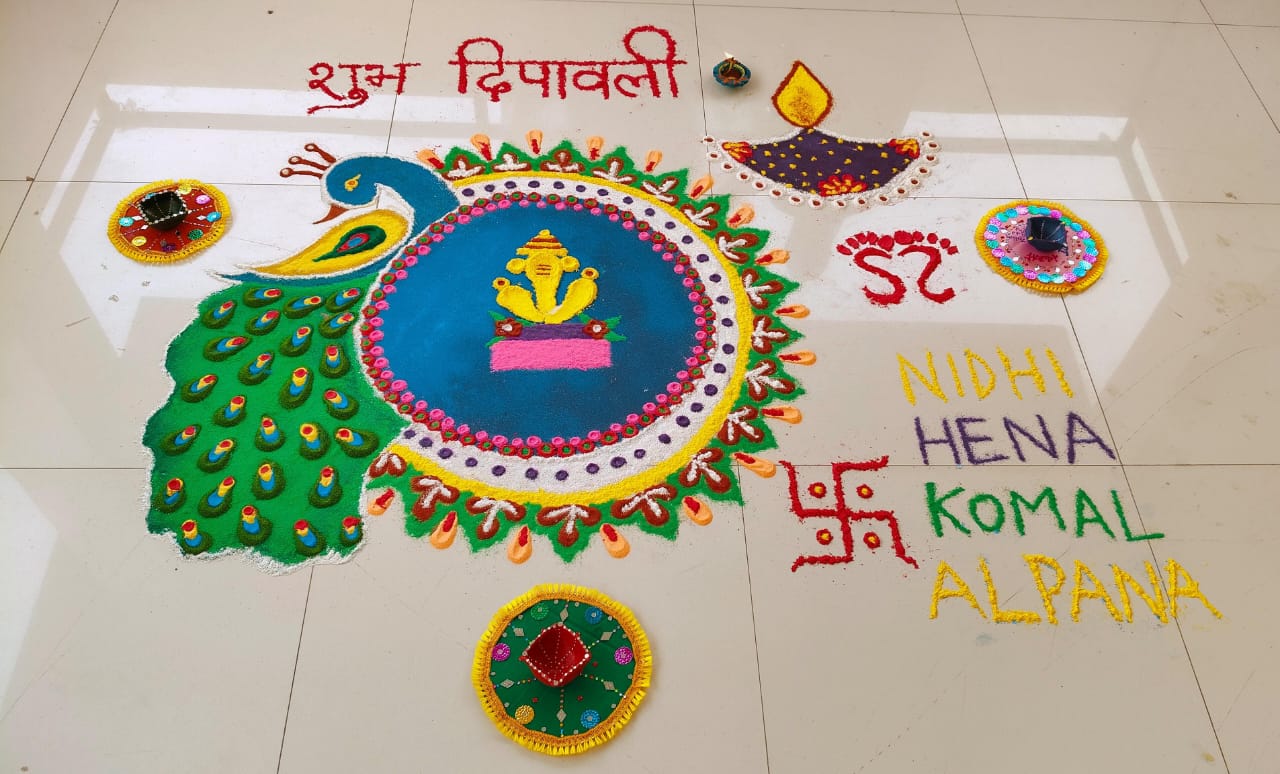 शुभ दिपावली
NIDHI
HENA
KOMAL
ALPANA